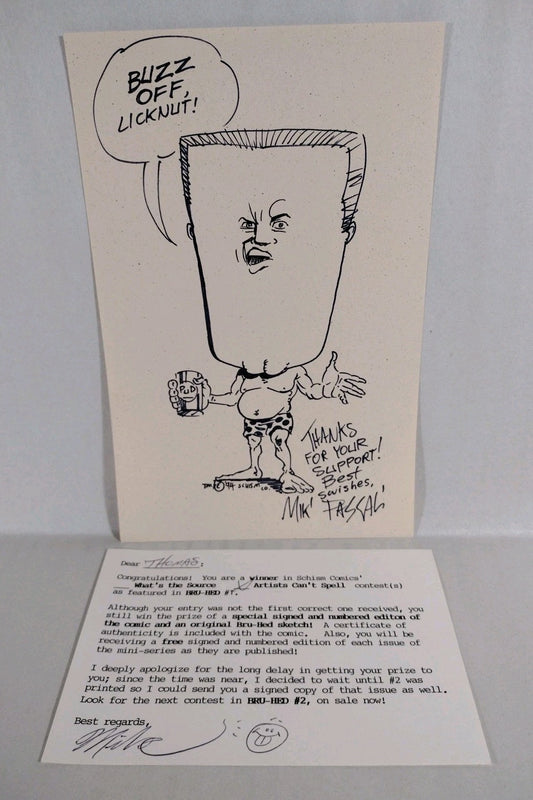 BUZZ
OFF,
LICKNUT!
PUD
'94 SCHISM
THANKS
FOR YOUR
SUPPORT!
Best
swishes,
Mik' PASCAL'
Dear THOMAS,
Congratulations! You are a winner in Schism Comics'
__ What's the Source X Artists Can't Spell contest(s)
as featured in BRU-HED #1.
Although your entry was not the first correct one received, you
still win the prize of a special signed and numbered editon of
the comic and an original Bru-Hed sketch! A certificate of
authenticity is included with the comic. Also, you will be
receiving a free signed and numbered edition of each issue of
the mini-series as they are published!
I deeply apologize for the long delay in getting your prize to
you; since the time was near, I decided to wait until #2 was
printed so I could send you a signed copy of that issue as well.
Look for the next contest in BRU-HED #2, on sale now!
Best regards,
Mike